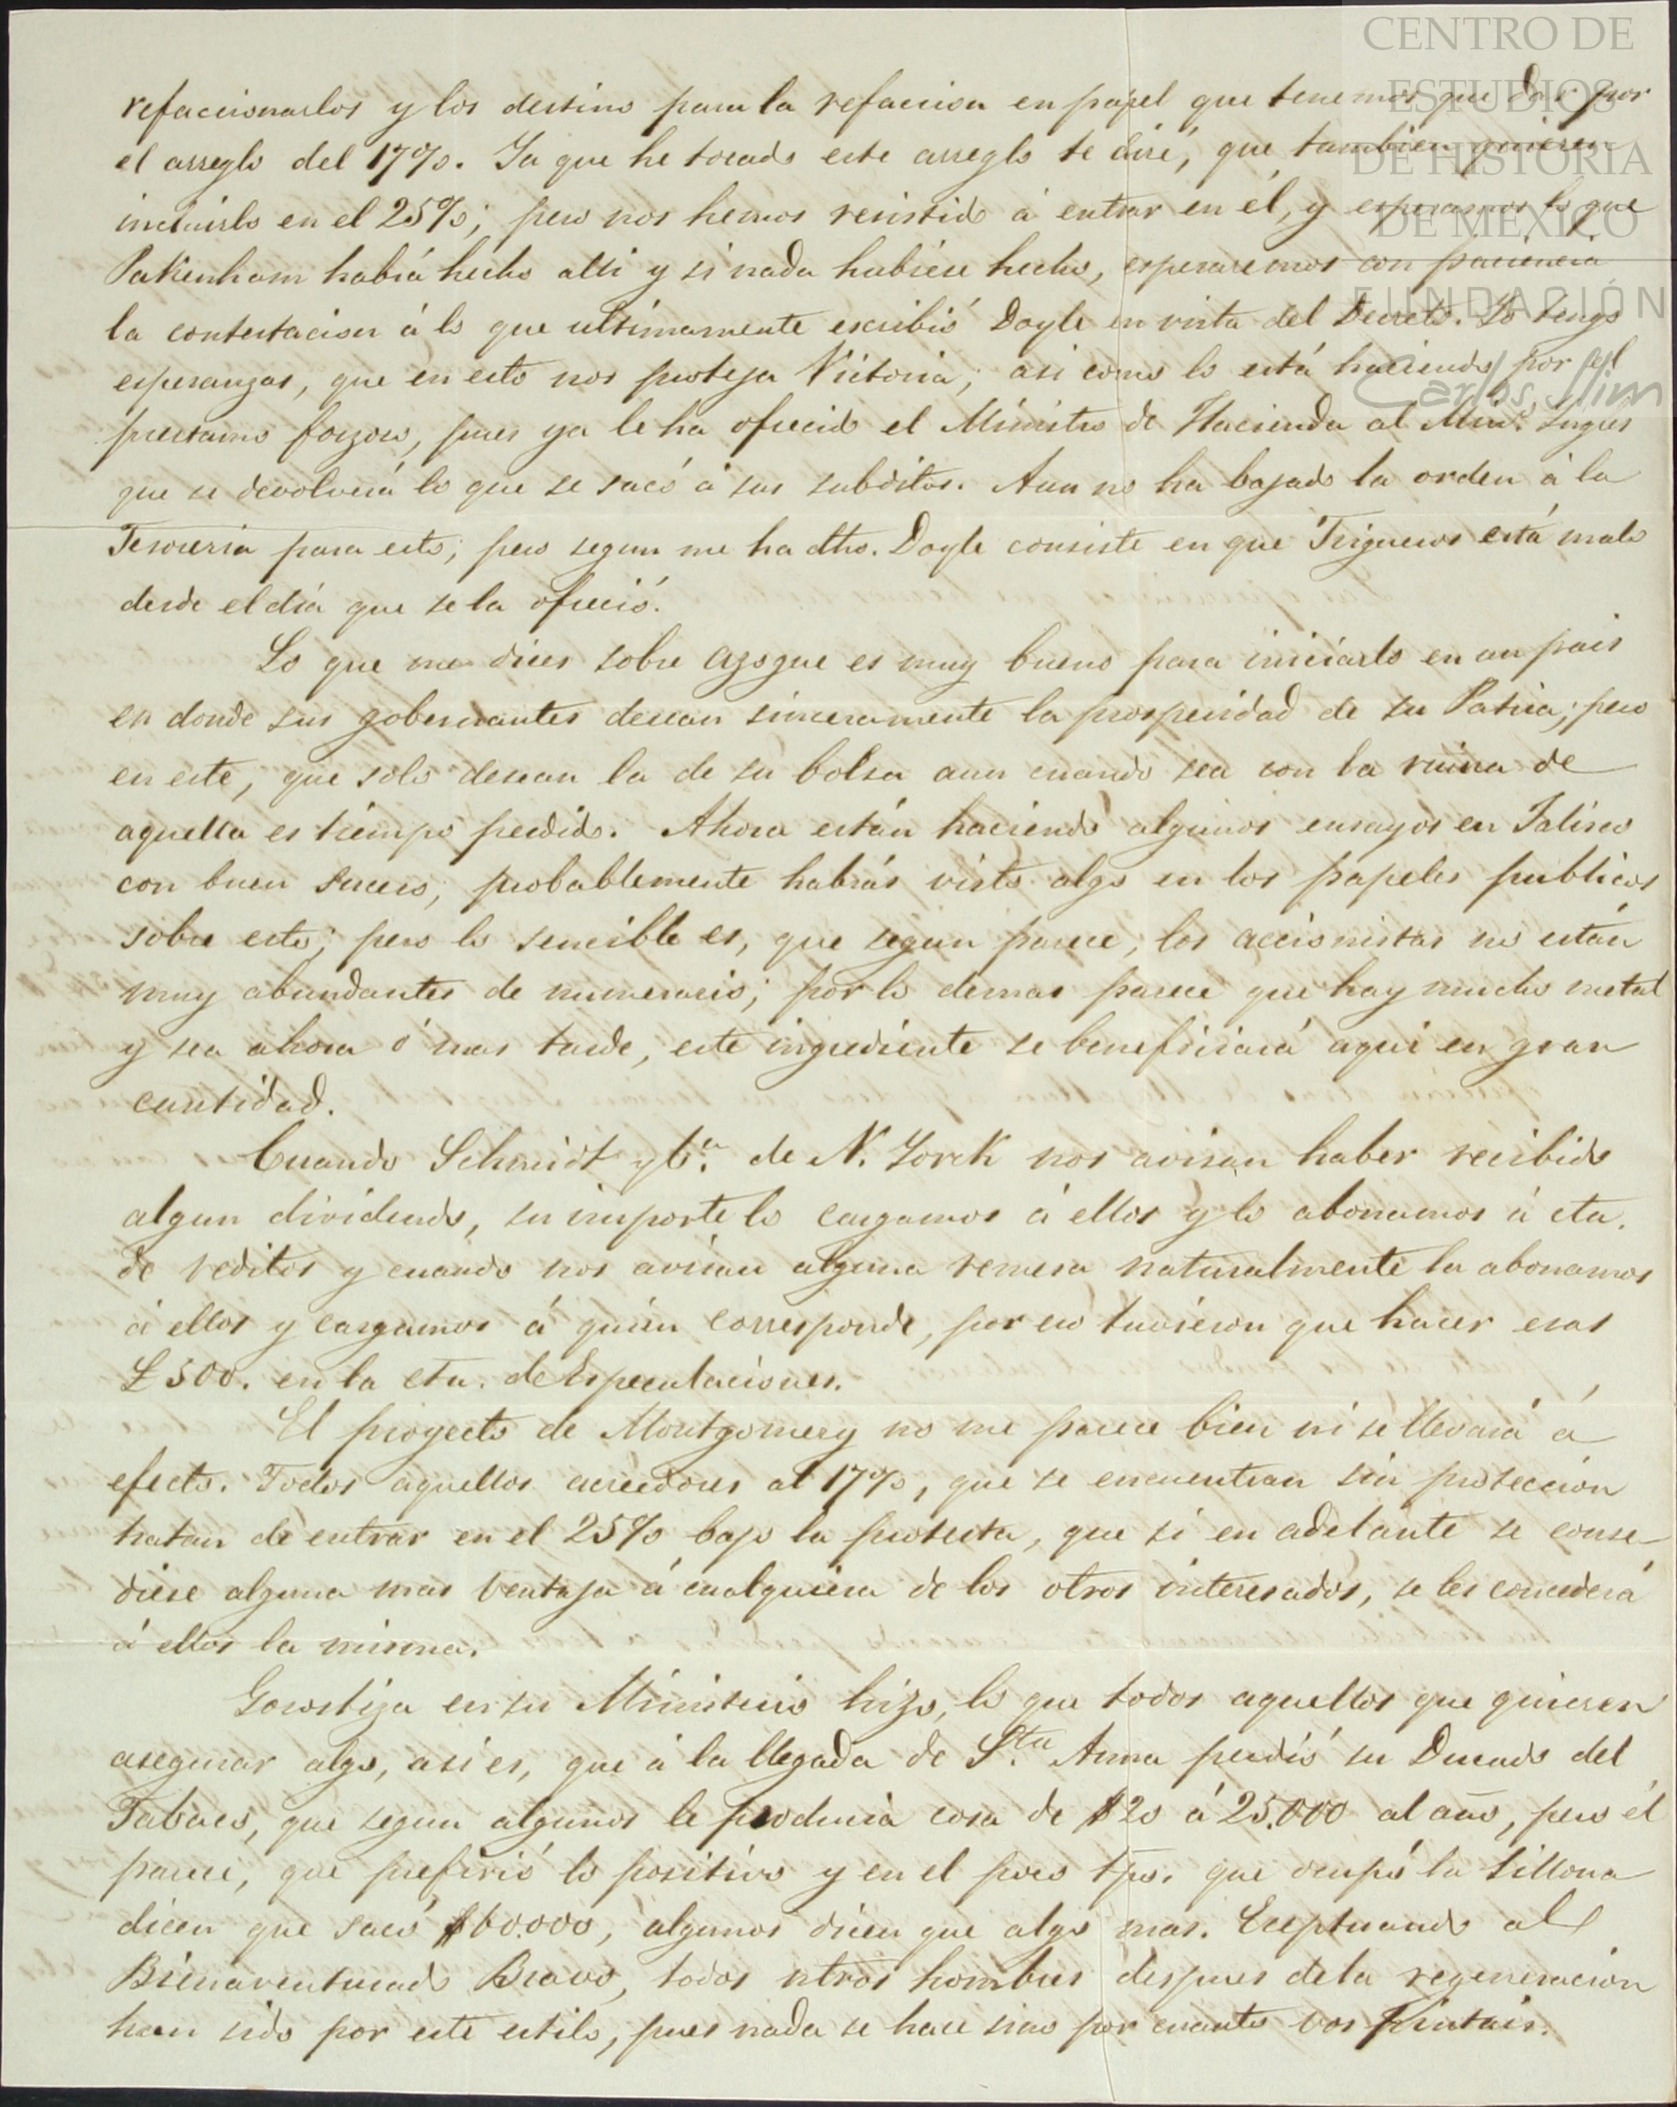 CENTRO DE
ESTUDIOS
DE HISTORIA
DE MÉXICO
FUNDACIÓN
Carlos Slim
refaccionarlos y los destino para la refaccion en papel que tenemos que dar por
el arreglo del 17%. Ya que he tocado este arreglo te diré, que tambien quieren
incluirlo en el 25%; pero nos hemos resistido á entrar en él, y esperamos lo que
Pakenham habrá hecho alli y si nada hubiese hecho, esperaremos con paciencia
la contestacion á lo que ultimamente escribió Doyle en vista del Decreto. Yo tengo
esperanzas, que en esto nos proteja Victoria; asi como lo está haciendo por el
prestamo forzoso, pues ya le ha ofrecido el Ministro de Hacienda al Min.º Ingles
que se devolverá lo que se sacó á sus subditos. Aun no ha bajado la orden á la
Tesoreria para esto; pero segun me ha dho. Doyle consiste en que Trigueros está malo
desde el día que se la ofreció.
Lo que me dices sobre azogue es muy bueno para iniciarlo en un pais
en donde sus gobernantes desean sinceramente la prosperidad de su Patria; pero
en este, que solo desean la de su bolsa aun cuando sea con la ruina de
aquella es tiempo perdido. Ahora están haciendo algunos ensayos en Jalisco
con buen suceso, probablemente habrás visto algo en los papeles publicos
sobre esto; pero lo sencible es, que segun parece, los accionistas no están
muy abundantes de numerario; por lo demas parece que hay mucho metal
y sea ahora ó mas tarde, este ingrediente se beneficiará aqui en gran
cantidad.
Cuando Schmidt y C.ª de N. Yorck nos avisan haber recibido
algun dividendo, su importe lo cargamos á ellos y lo abonamos á cta.
de reditos y cuando nos avisan alguna remesa naturalmente la abonamos
á ellos y cargamos á quien corresponde, por eso tuvieron que hacer esas
£500. en la cta. de Especulaciones.
El proyecto de Montgomery no me parece bien ni se llevará á
efecto. Todos aquellos acreedores al 17%, que se encuentran sin proteccion
tratan de entrar en el 25% bajo la protesta, que si en adelante se conse-
diese alguna mas ventaja á cualquiera de los otros interesados, se les concederá
á ellos la misma.
Gorostiza en su Ministerio hizo, lo que todos aquellos que quieren
asegurar algo, asi es, que á la llegada de S.ta Anna perdió su Ducado del
Tabaco, que segun algunos le producia cosa de $20 á 25.000 al año, pero él
parece, que prefirió lo positivo y en el poco tpo. que ocupó la sillona
dicen que sacó $60.000, algunos dicen que algo mas. Eceptuando al
Bienaventurado Bravo, todos ntros hombres despues de la regeneracion
han sido por este estilo, pues nada se hace sino por cuanto vos